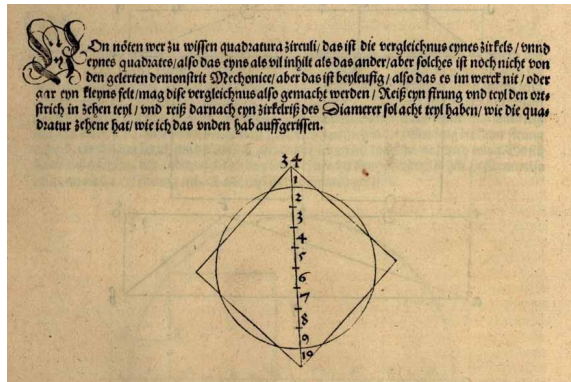 VOn nöten wer zu wissen quadratura zirculi/das ist die vergleichnus eynes zirkels/vnnd
eynes quadrates/also das eyns als vil inhilt als das ander/aber solches ist noch nicht von
den gelerten demonstrirt Mechonice/aber das ist beyleufig/also das es im werck nit/oder
gar eyn kleyns felt/mag dise vergleichnus also gemacht werden/Reiß eyn firung vnd teyl den ort-
strich in zehen teyl/vnd reiß darnach eyn zirkelriß des Diameter sol acht teyl haben/wie die qua-
dratur zehene hat/wie ich das vnden hab auffgerissen.
34
1
2
3
4
5
6
7
8
9
10